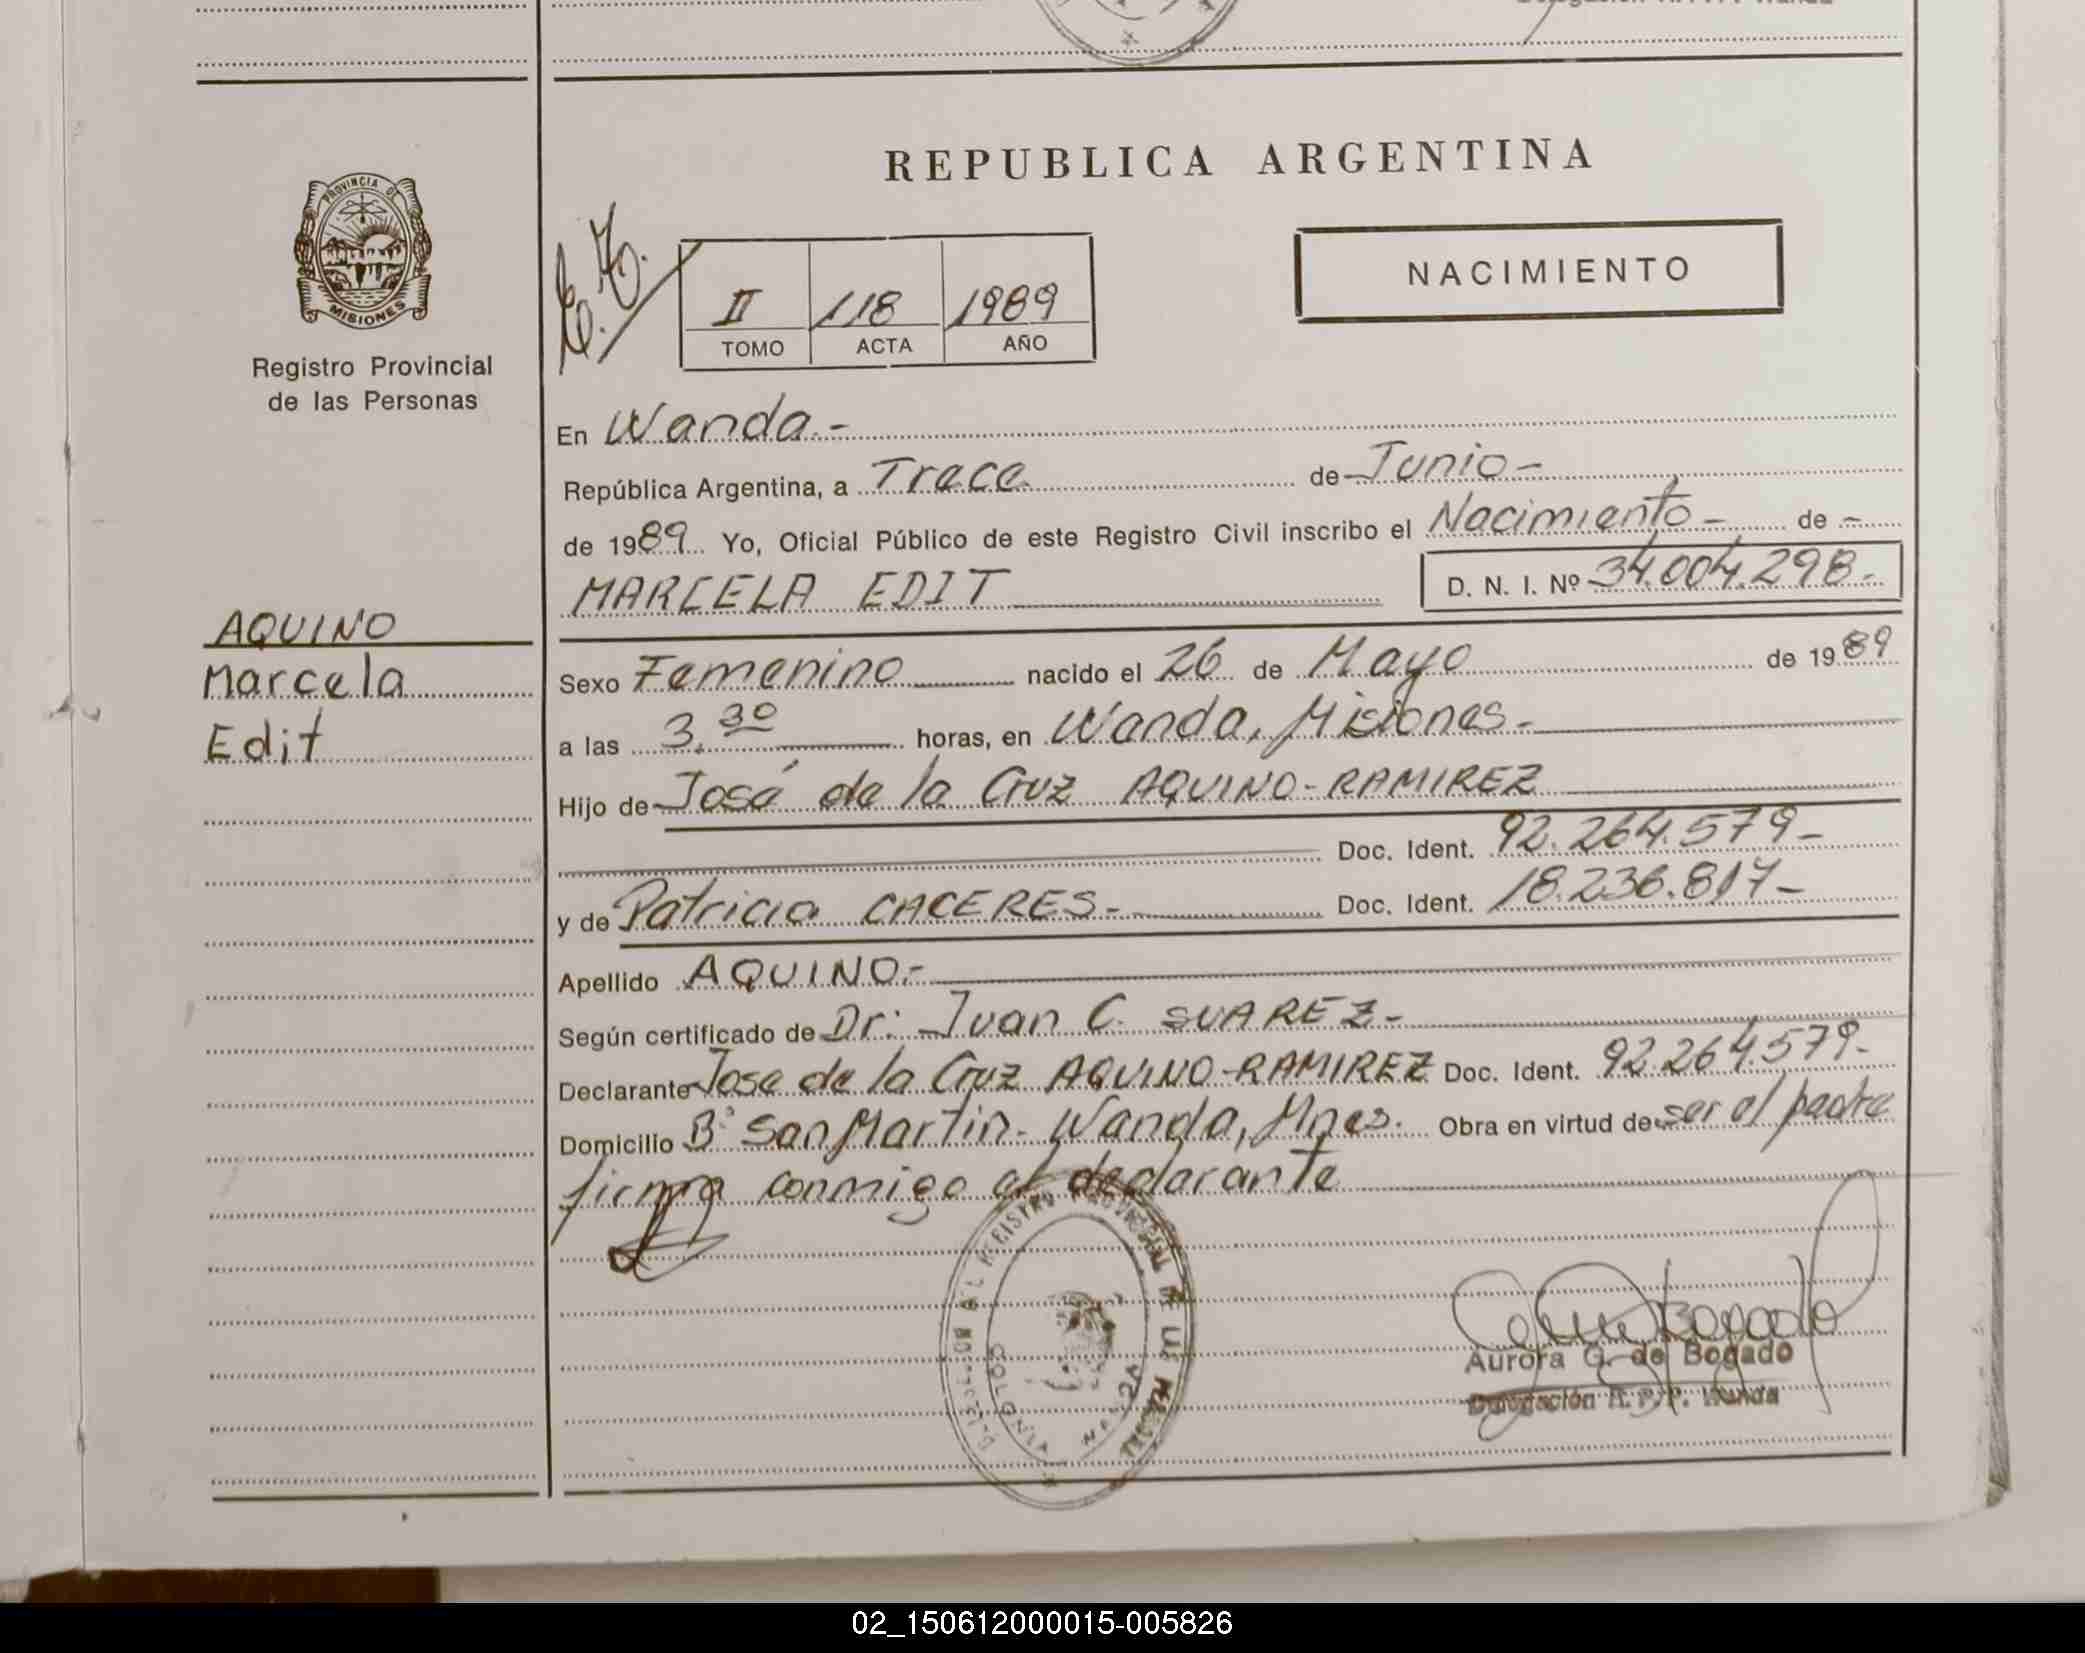 REPUBLICA ARGENTINA
PROVINCIA DE
MISIONES
Registro Provincial
de las Personas
II 118 1989
TOMO ACTA AÑO
NACIMIENTO
En Wanda.-
República Argentina, a Trece de Junio-
de 1989 Yo, Oficial Público de este Registro Civil inscribo el Nacimiento- de -
MARCELA EDIT D. N. I. Nº 34.004.298.-
AQUINO
Marcela
Edit
Sexo Femenino nacido el 26 de Mayo de 1989
a las 3,30 horas, en Wanda, Misiones.-
Hijo de José de la Cruz AQUINO-RAMIREZ
Doc. Ident. 92.264.579-
y de Patricia CACERES.- Doc. Ident. 18.236.817-
Apellido AQUINO.-
Según certificado de Dr: Juan C. SUAREZ-
Declarante Jose de la Cruz AQUINO-RAMIREZ Doc. Ident. 92.264.579-
Domicilio Bº San Martin- Wanda, Mnes. Obra en virtud de ser el padre
firma conmigo el declarante
Aurora G. de Bogado
Delegación R. P. P. Wanda
02_150612000015-005826